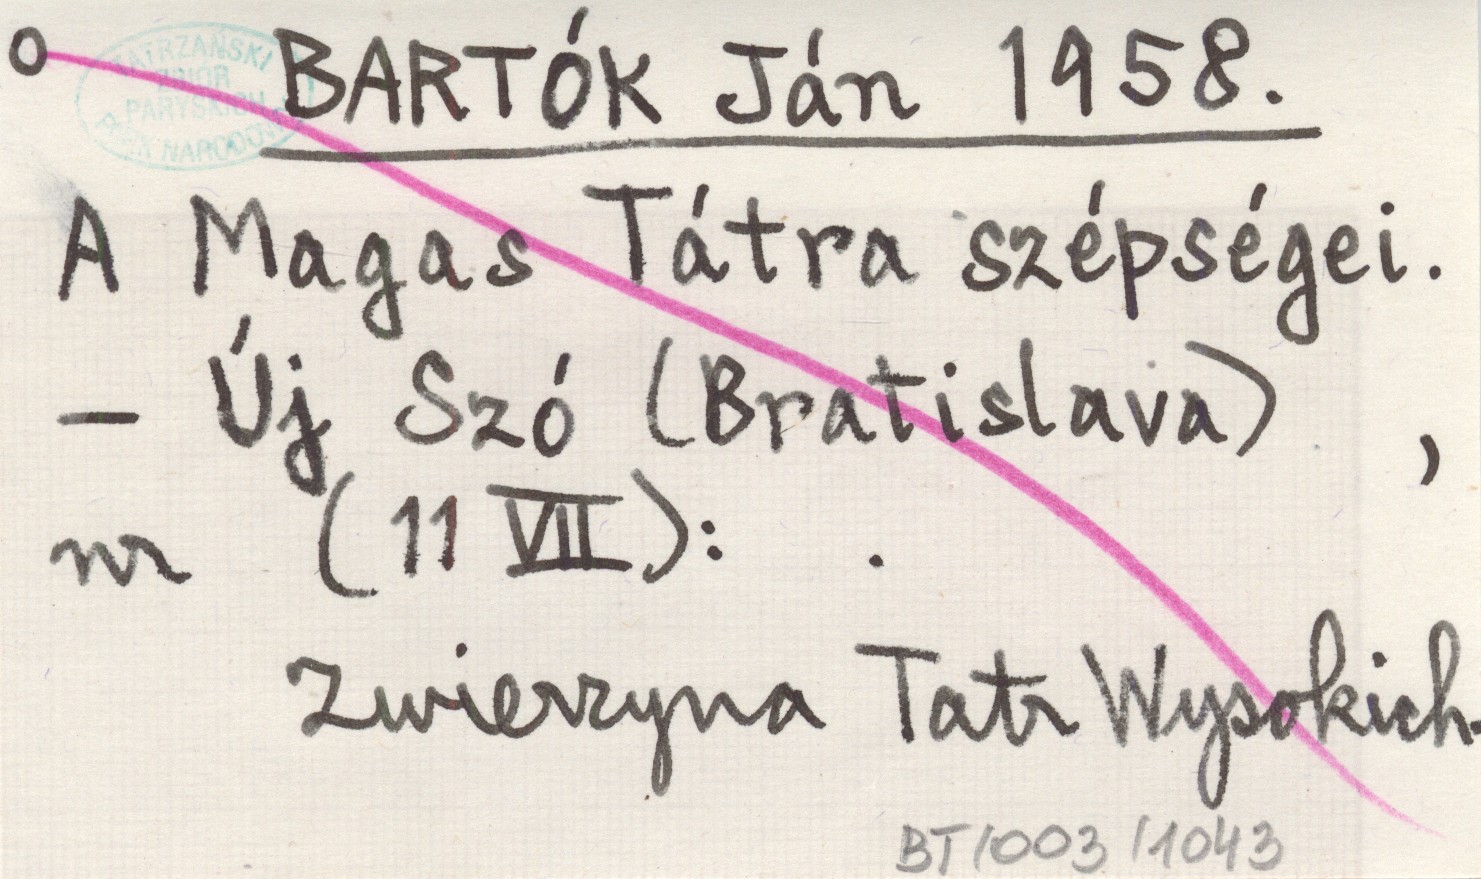 o BARTÓK Ján 1958.
TATRZAŃSKI
ZBIÓR
PARYSKICH
PARK NARODOWY
A Magas Tátra szépségei.
– Új Szó (Bratislava) ,
nr (11 VII): .
Zwierzyna Tatr Wysokich.
BT/003/1043